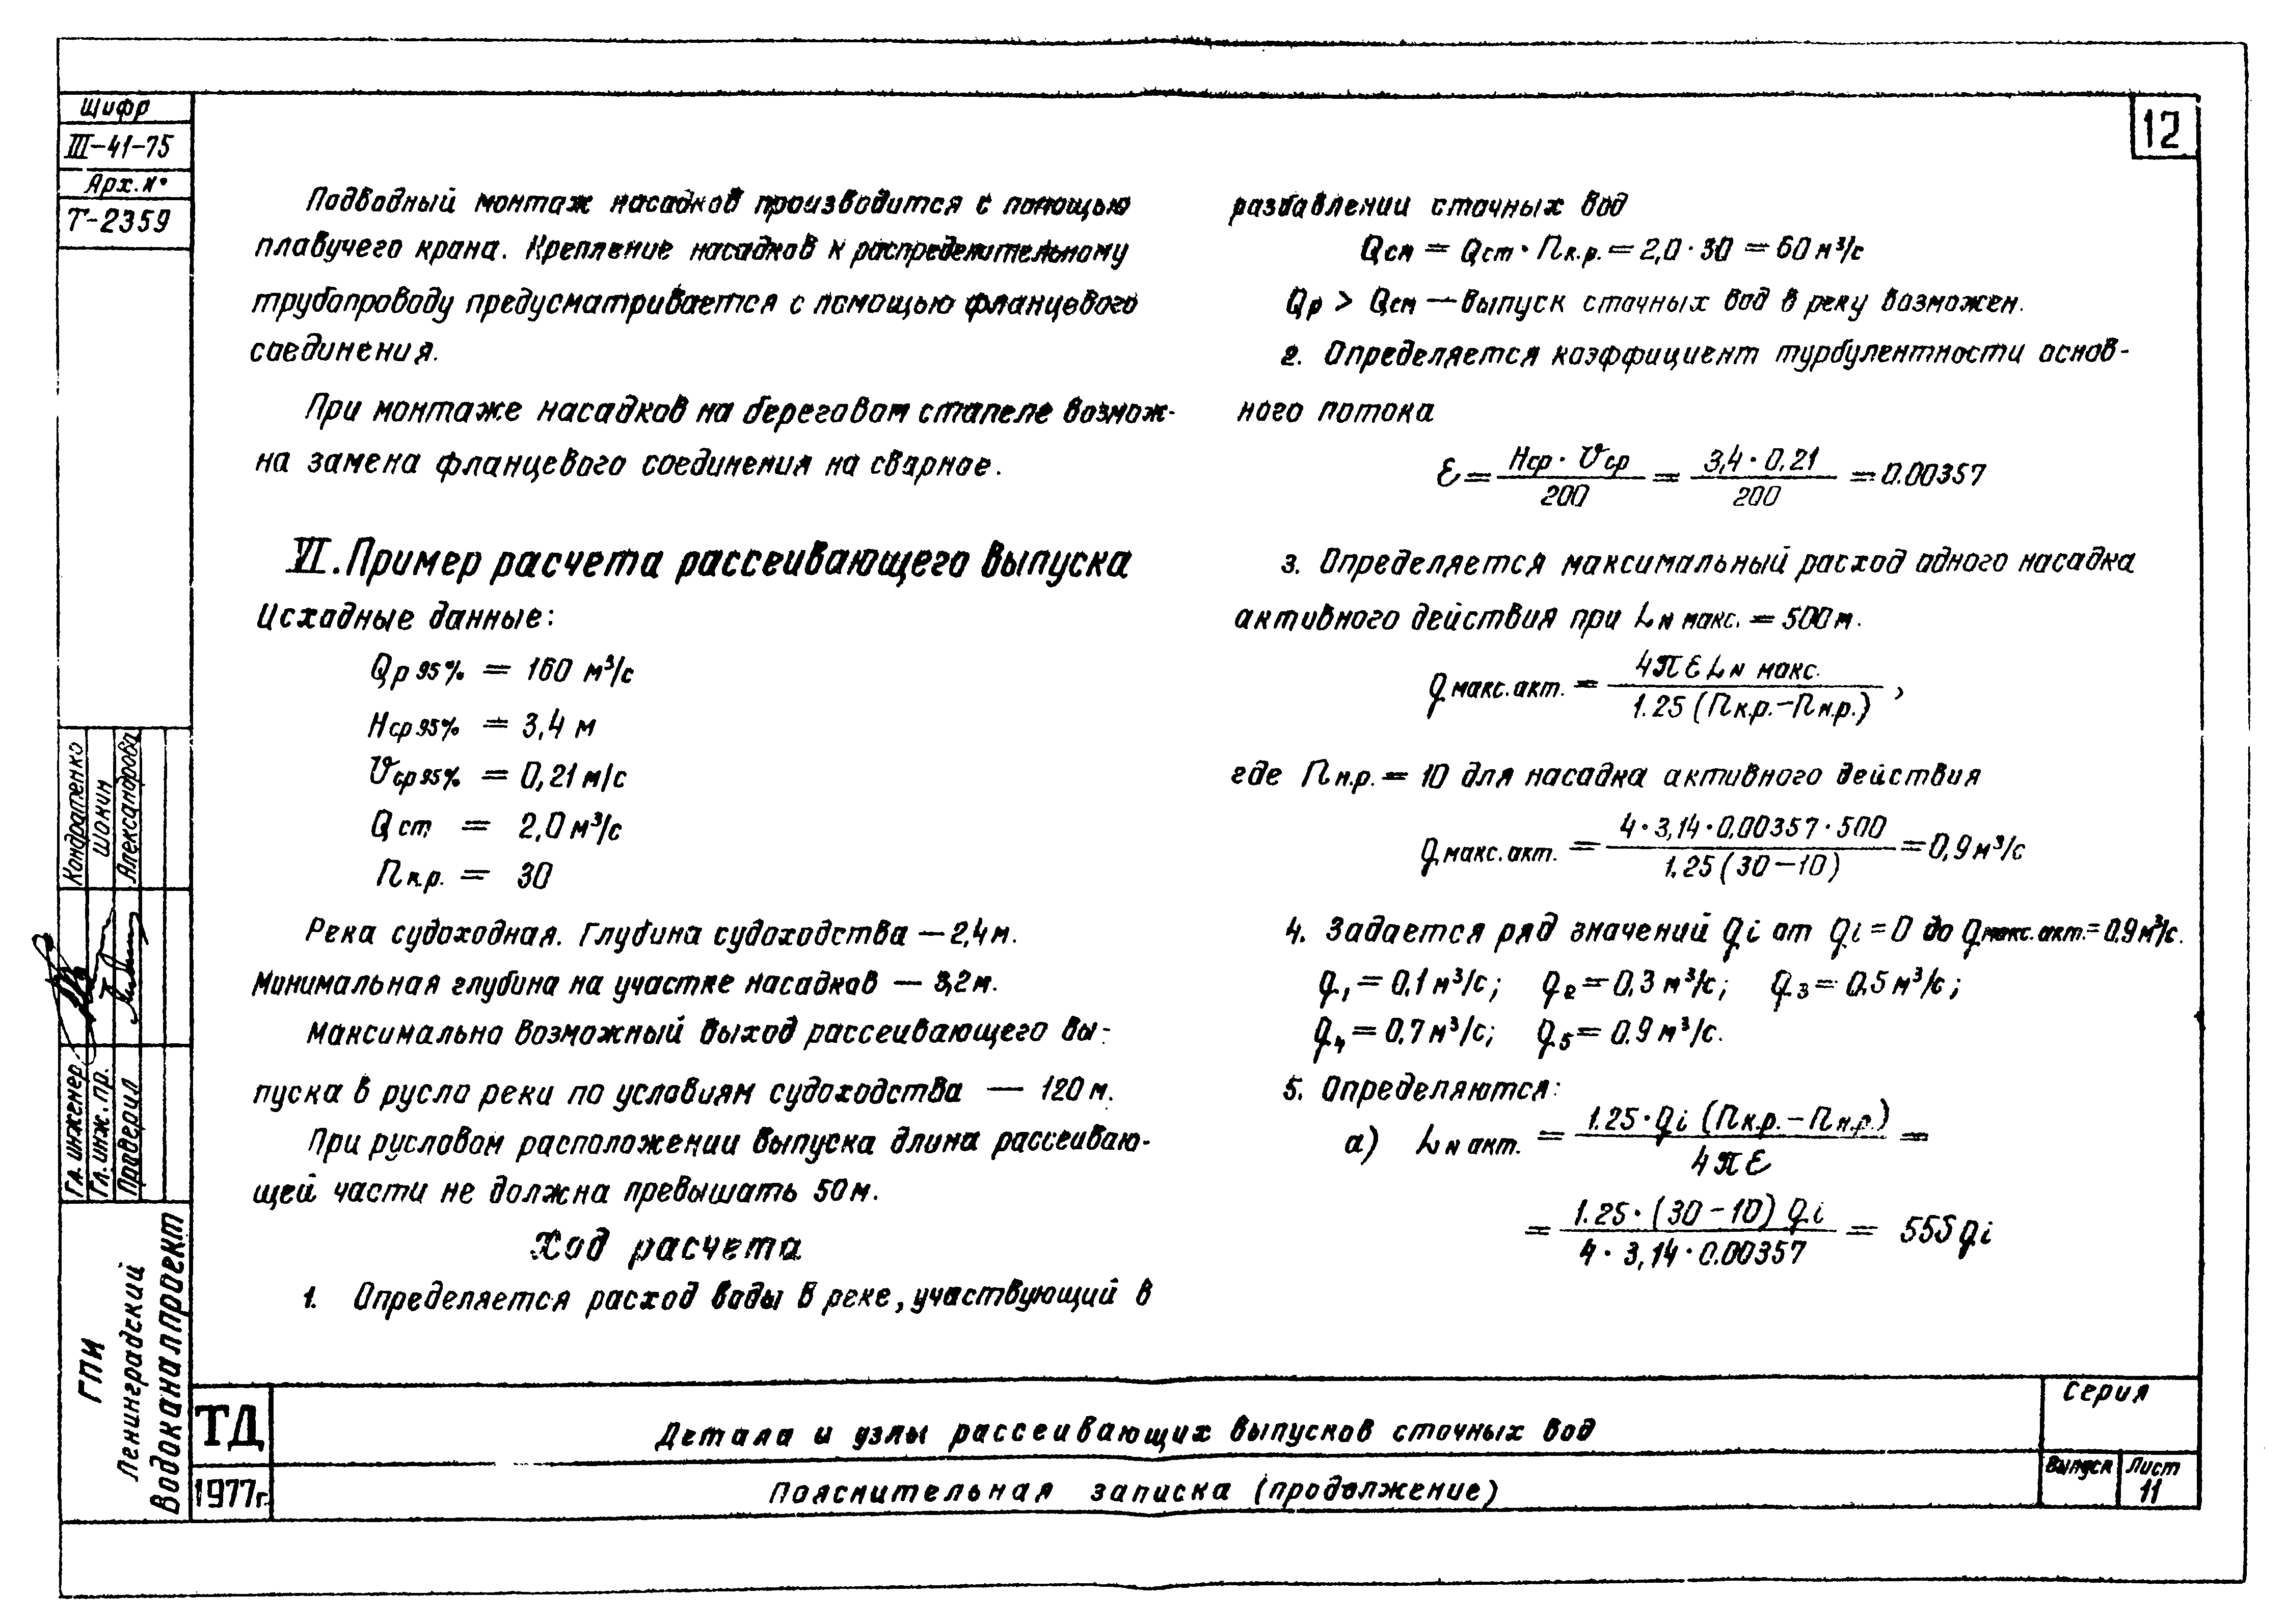 Шифр
III-41-75
Арх.№
Т-2359
12
Подводный монтаж насадков производится с помощью
плавучего крана. Крепление насадков к распределительному
трубопроводу предусматривается с помощью фланцевого
соединения.
При монтаже насадков на береговом стапеле возмож-
на замена фланцевого соединения на сварное.
VI. Пример расчета рассеивающего выпуска
Исходные данные:
Qр 95% = 160 м³/с
Hср 95% = 3,4 м
Vср 95% = 0,21 м/с
Qст = 2,0 м³/с
Пк.р. = 30
Река судоходная. Глубина судоходства — 2,4 м.
Минимальная глубина на участке насадков — 3,2 м.
Максимально возможный выход рассеивающего вы-
пуска в русло реки по условиям судоходства — 120 м.
При русловом расположении выпуска длина рассеиваю-
щей части не должна превышать 50 м.
Ход расчета
1. Определяется расход воды в реке, участвующий в
разбавлении сточных вод
Qсм = Qст · Пк.р. = 2,0 · 30 = 60 м³/с
Qр > Qсм — выпуск сточных вод в реку возможен.
2. Определяется коэффициент турбулентности основ-
ного потока
ε = Hср · Vср / 200 = 3,4 · 0,21 / 200 = 0.00357
3. Определяется максимальный расход одного насадка
активного действия при LN макс. = 500 м.
q макс. акт. = 4πεLN макс. / 1.25 (Пк.р. – Пн.р.) ,
где Пн.р. = 10 для насадка активного действия
q макс. акт. = 4 · 3,14 · 0,00357 · 500 / 1.25 (30 – 10) = 0,9 м³/с
4. Задается ряд значений qi от qi = 0 до q макс. акт. = 0.9 м³/с.
q1 = 0.1 м³/с; q2 = 0.3 м³/с; q3 = 0.5 м³/с;
q4 = 0.7 м³/с; q5 = 0.9 м³/с.
5. Определяются:
а) LN акт. = 1.25 · qi (Пк.р. – Пн.р.) / 4πε =
= 1.25 · (30 – 10) qi / 4 · 3,14 · 0.00357 = 555 qi
Кондратенко
Шонин
Александрова
Гл. инженер
Гл. инж. пр.
Проверил
ГПИ
Ленинградский
Водоканалпроект
ТД
1977г.
Детала и узлы рассеивающих выпусков сточных вод
Пояснительная записка (продолжение)
Серия
Выпуск
Лист
11